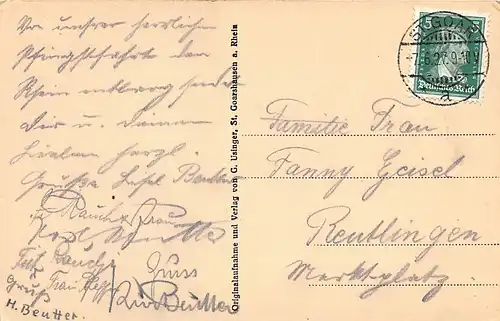 Von unsrer herrlichen
Pfingstfahrt den
Rhein entlang senden
Dir u. Deinen
Lieben herzl.
Grüße Liesel Beutter
Rauch u. Frau
Fritz Rauch
Gruss
Gruß Frau
Beutter
H. Beutter.
Originalaufnahme und Verlag von G. Usinger, St. Goarshausen a. Rhein
5 5
Deutsches Reich
ST. GOAR
6.27.9-10
Familie Frau
Fanny Geisel
Reutlingen
Marktplatz.